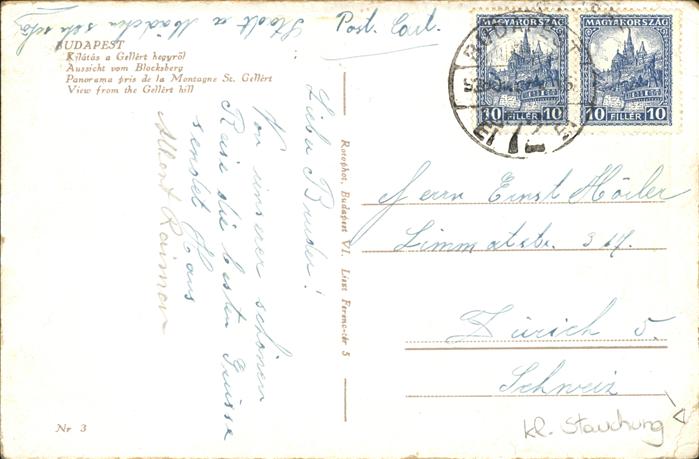 BUDAPEST
Kilátás a Gellért hegyről
Aussicht vom Blocksberg
Panorama pris de la Montagne St. Gellért
View from the Gellért hill
Post. Cart.
Stadt u Mädchen sehr
Lieber Bruder!
Von unserer schönen
Reise die besten Grüsse
sendet Hans
Albert
Rotophot, Budapest VI. Liszt Ferenc-tér 5
MAGYARORSZÁG
10 FILLÉR 10
MAGYARORSZÁG
10 FILLÉR 10
BUDAPEST
72
Herrn Ernst
Limmatstr. 317.
Zürich 5.
Schweiz
kl. Stauchung
Nr 3